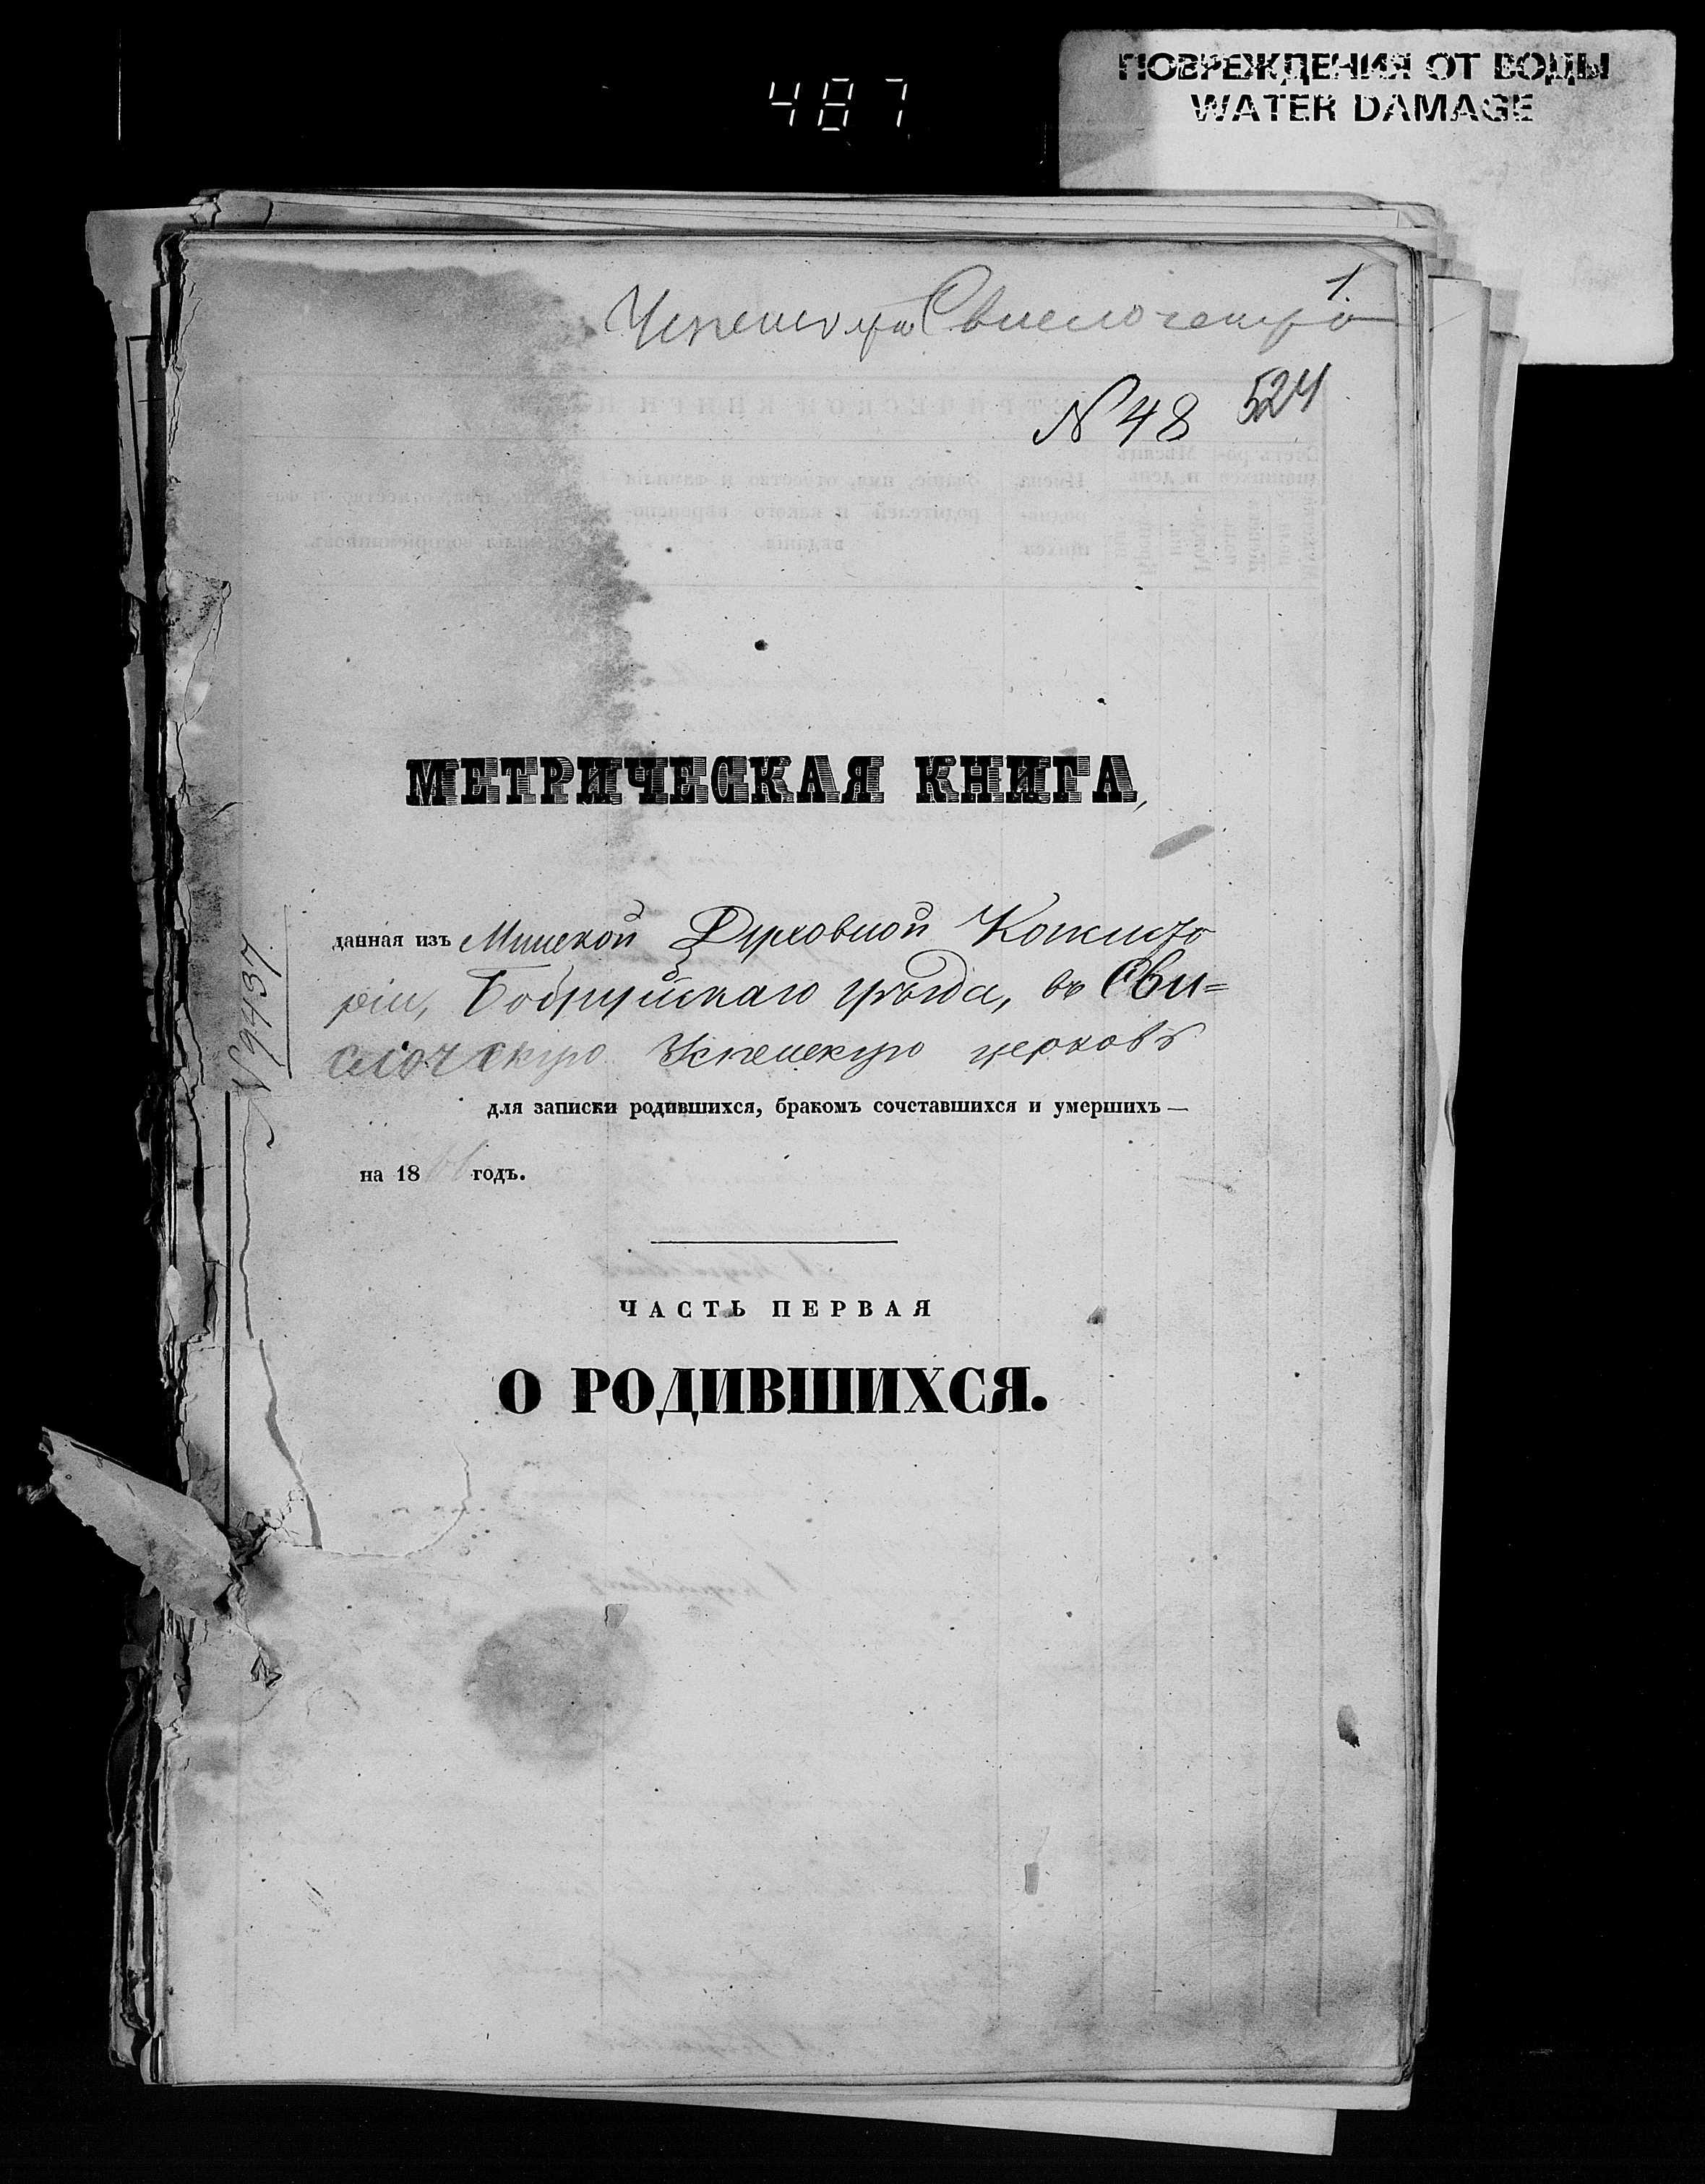 487
ПОВРЕЖДЕНИЯ ОТ ВОДЫ
WATER DAMAGE
1.
№ 48 524
МЕТРИЧЕСКАЯ КНИГА,
данная изъ Минской Духовной Консисто
ріи, Бобруйскаго уѣзда, въ Сви=
слочскую Успенскую церковь
№ 9437
для записки родившихся, бракомъ сочетавшихся и умершихъ —
на 1866 годъ.
ЧАСТЬ ПЕРВАЯ
О РОДИВШИХСЯ.